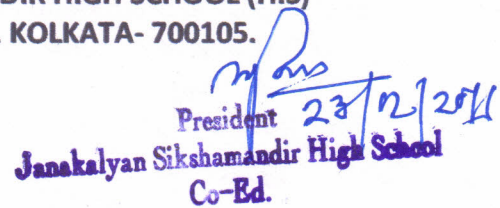 HIGH SCHOOL (H.S)
KOLKATA- 700105.
President
Janakalyan Sikshamandir High School
Co-Ed.